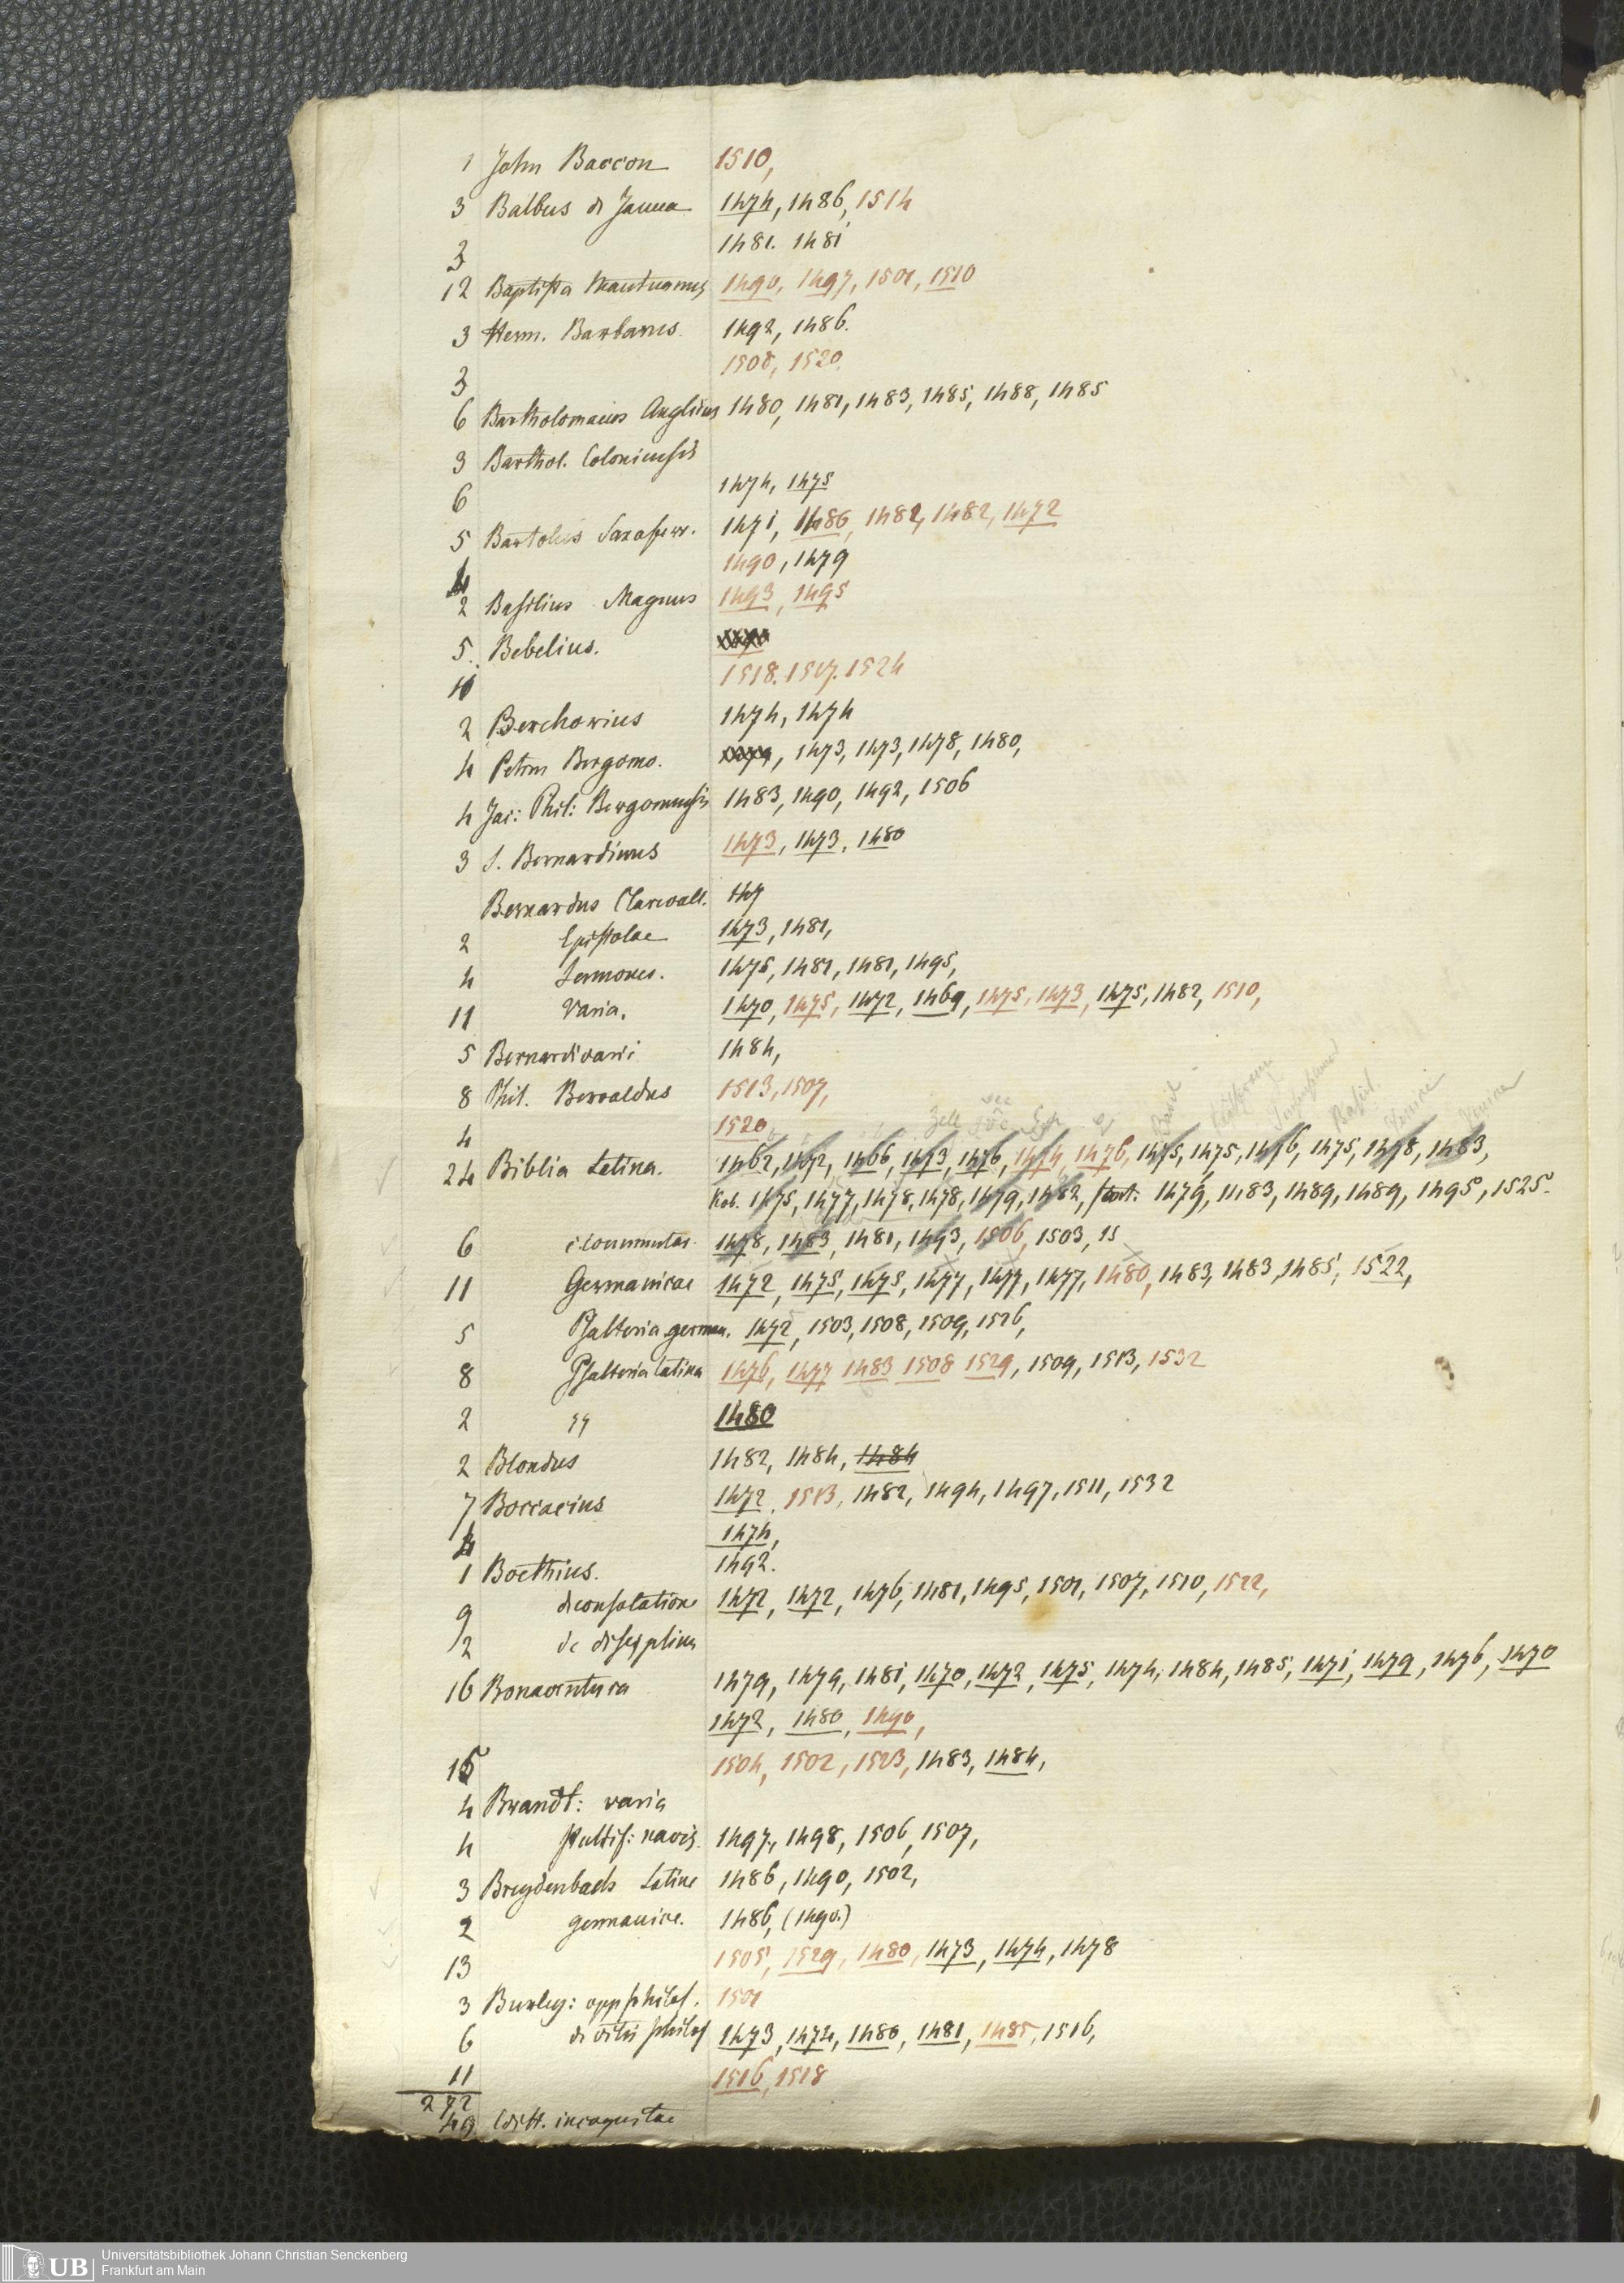 1 John Baccon 1510,
3 Balbus d Janua 1474, 1486, 1514
3 1481. 1481
12 Baptista Mantuanus 1490, 1497, 1501, 1510
3 Herm. Barbarus. 1492, 1486.
3 1508, 1520.
6 Bartholomaeus Anglicus 1480, 1481, 1483, 1485, 1488, 1485
3 Barthol. Coloniensis
6 1474, 1475
5 Bartolus Saxoferr. 1471, 1486, 1482, 1482, 1472
4 1490, 1479
2 Basilius Magnus 1493, 1495
5. Bebelius.
1518. 1517. 1524
2 Berchorius 1474, 1474
4 Petrus Bergomo. 1473, 1473, 1478, 1480,
4 Jac: Phil: Bergomensis 1483, 1490, 1492, 1506
3 S. Bernardinus 1473, 1473, 1480
Bernardus Clarevall. 147
2 Epistolae 1473, 1481,
4 Sermones. 1475, 1481, 1481, 1495,
11 Varia. 1470, 1475, 1472, 1469, 1475, 1473, 1475, 1482, 1510,
5 Bernardi varii 1484,
8 Phil. Beroaldus 1513, 1507,
4 1520,
24 Biblia Latina. 1462, 1472, 1466, 1473, 1476, 1474, 1476, 1475, 1475, 1476, 1475, 1478, 1483,
Kob. 1475, 1477, 1478, 1478, 1479, 1482, 1479, 1483, 1489, 1489, 1495, 1525.
6 c commentar. 1478, 1483, 1481, 1493, 1506, 1503, 15
11 Germanicae 1472, 1475, 1475, 1477, 1477, 1477, 1480, 1483, 1483, 1485, 1522,
5 Psalteria german. 1472, 1503, 1508, 1509, 1526,
8 Psalteria latina 1476, 1477 1483 1508 1529, 1509, 1513, 1532
2 1480
2 Blondus 1482, 1484, 1484
7 Boccacius 1472, 1513, 1482, 1494, 1497, 1511, 1532
4 1474,
1 Boethius. 1492.
9 d consolatione 1472, 1472, 1476, 1481, 1495, 1501, 1507, 1510, 1522,
2 de disciplina
16 Bonaventura 1479, 1479, 1481, 1470, 1472, 1475, 1474, 1484, 1485, 1471, 1479, 1476, 1470
1472, 1480, 1490,
15 1504, 1502, 1523, 1483, 1484,
4 Brandt: varia
4 stultif: navis. 1497, 1498, 1506, 1507,
3 Breydenbach Latine 1486, 1490, 1502,
2 germanice. 1486, (1490.)
13 1505, 1529, 1480, 1473, 1474, 1478
3 Burley: opp philos. 1501
6 d vitis philos 1473, 1472, 1480, 1481, 1485, 1516,
11 1516, 1518
272
49 Editt. incognitae
Universitätsbibliothek Johann Christian Senckenberg
UB Frankfurt am Main